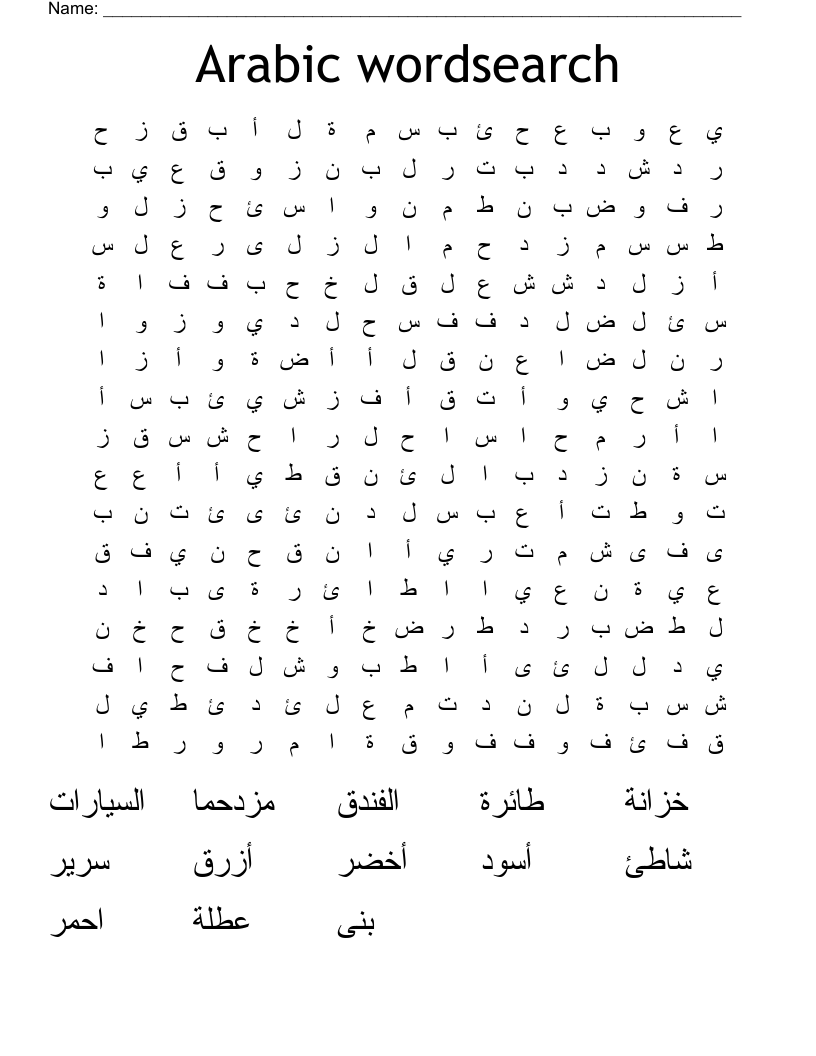 Name:
Arabic wordsearch
ي ع و ب ع ح ئ ب س م ة ل أ ب ق ز ح
ر د ش د د ب ت ر ل ب ن ز و ق ع ي ب
ر ف و ض ب ن ط م ن و ا س ئ ح ز ل و
ط س س م ز د ح م ا ل ز ل ى ر ع ل س
أ ز ل د ش ش ع ل ق ل خ ح ب ف ف ا ة
س ئ ل ض ل د ف ف س ح ل د ي و ز و ا
ر ن ل ض ا ع ن ق ل أ أ ض ة و أ ز ا
ا ش ح ي و أ ت ق أ ف ز ش ي ئ ب س أ
ا أ ر م ح ا س ا ح ل ر ا ح ش س ق ز
س ة ن ز د ب ا ل ئ ن ق ط ي أ أ ع ع
ت و ط ت أ ع ب س ل د ن ئ ى ئ ت ن ب
ى ف ى ش م ت ر ي أ ا ن ق ح ن ي ف ق
ع ي ة ن ع ي ا ا ط ا ئ ر ة ى ب ا د
ل ط ض ب ر د ط ر ض خ أ خ خ ق ح خ ن
ي د ل ل ئ ى أ ا ط ب و ش ل ف ح ا ف
ش س ب ة ل ن د ت م ع ل ئ د ئ ط ي ل
ق ف ئ ف و ف ف و ق ة ا م ر و ر ط ا
خزانة طائرة الفندق مزدحما السيارات
شاطئ أسود أخضر أزرق سرير
بنى عطلة احمر